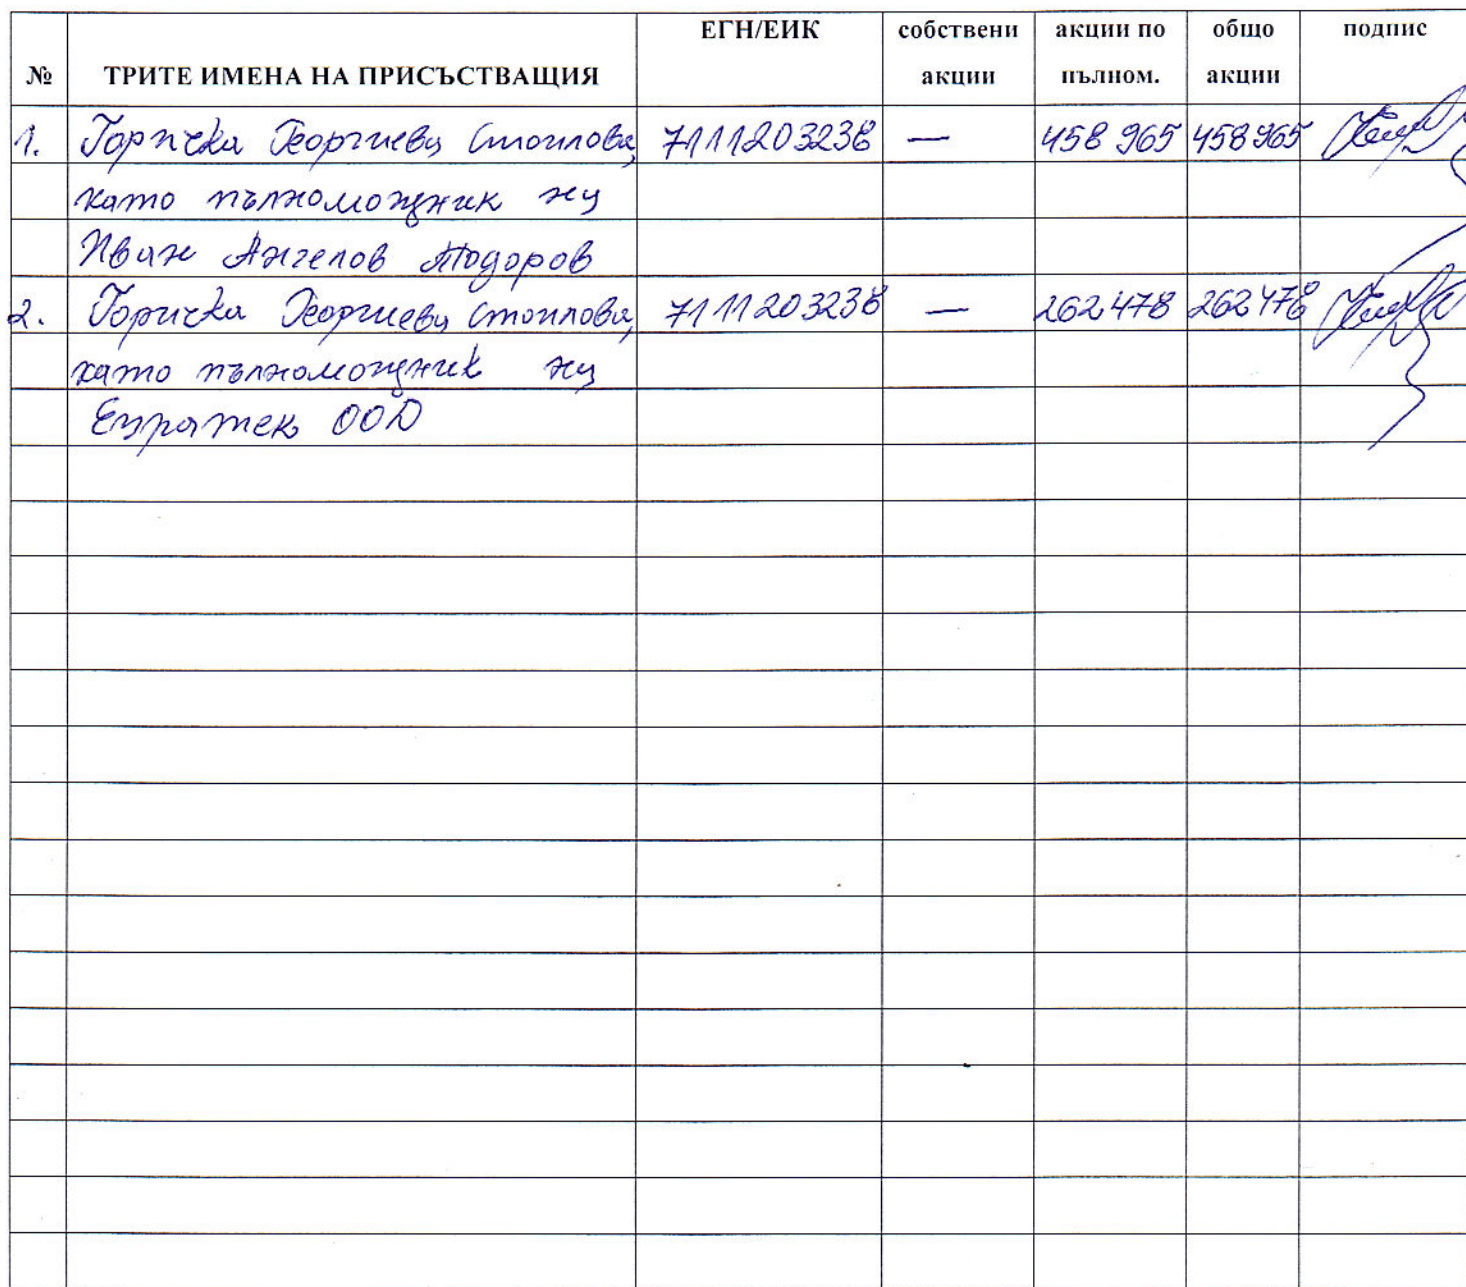 № ТРИТЕ ИМЕНА НА ПРИСЪСТВАЩИЯ ЕГН/ЕИК собствени акции акции по пълном. общо акции подпис
1. Горичка Георгиева Стоилова, 7111203238 — 458 965 458 965
като пълномощник на
Иван Ангелов Тодоров
2. Горичка Георгиева Стоилова, 7111203238 — 262 478 262 478
като пълномощник на
ООД